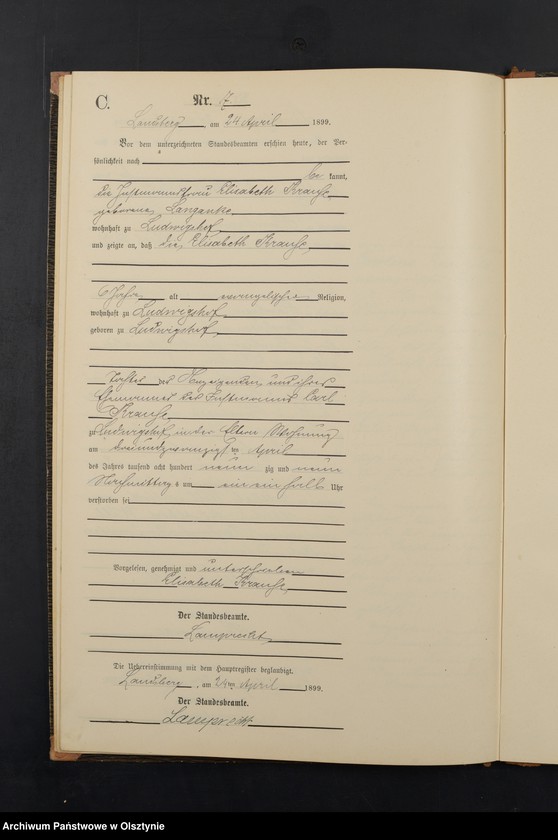 C.
Nr. 17
Landsberg am 24 April 1899.
Vor dem unterzeichneten Standesbeamten erschien heute, der Per-
sönlichkeit nach
be kannt,
die Instmannsfrau Elisabeth Krause
geborene Langanke
wohnhaft zu Ludwigshof
und zeigte an, daß die Elisabeth Krause,
6 Jahre alt evangelischer Religion,
wohnhaft zu Ludwigshof
geboren zu Ludwigshof,
Tochter der Anzeigenden und ihres
Ehemannes des Instmannes Carl
Krause
zu Ludwigshof, in der Eltern Wohnung
am dreiundzwanzigsten April
des Jahres tausend acht hundert neun zig und neun
Nachmittag s um ein ein halb Uhr
verstorben sei
Vorgelesen, genehmigt und unterschrieben
Elisabeth Krause
Der Standesbeamte.
Lamprecht
Die Uebereinstimmung mit dem Hauptregister beglaubigt.
Landsberg, am 24ten April 1899.
Der Standesbeamte.
Lamprecht
Archiwum Państwowe w Olsztynie